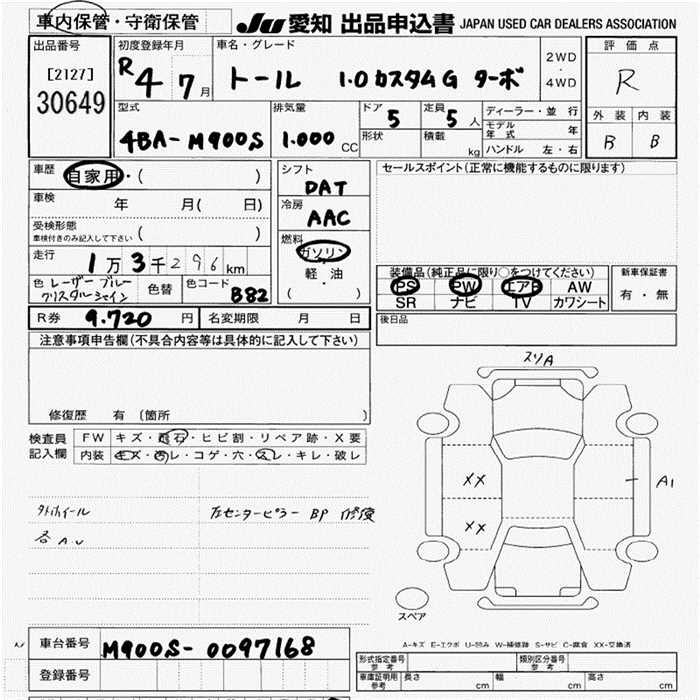 車内保管・守衛保管
JU 愛知 出品申込書 JAPAN USED CAR DEALERS ASSOCIATION
出品番号
[2127]
30649
初度登録年月
R4 7月
車名・グレード
トール 1.0カスタムG ターボ
2WD
・
4WD
評価点
R
外装 内装
B B
型式
4BA-M900S
排気量
1.000 CC
ドア 5
形状
定員 5 人
積載 kg
ディーラー・並行
モデル年式 年
ハンドル 左・右
車歴 自家用・( )
車検 年 月( 日)
受検形態
車検付きのみ記入して下さい ( )
走行 1万3千296km
色 レーザーブルー
クリスタルシャイン
色替
色コード B82
R券 9.720 円
名変期限 月 日
シフト
DAT
冷房
AAC
燃料
ガソリン
・
軽・油
( )
セールスポイント(正常に機能するものに限ります)
装備品(純正品に限り○をつけてください)
PS PW エアB AW
SR ナビ TV カワシート
新車保証書
有・無
後日品
注意事項申告欄(不具合内容等は具体的に記入して下さい)
修復歴 有(箇所 )
検査員
記入欄
FW キズ・飛石・ヒビ割・リペア跡・X要
内装 キズ・汚レ・コゲ・穴・スレ・キレ・破レ
タイヤホイール
各A.U
左センターピラー BP 修復
スリA
XX
XX
A1
スペア
A-キズ E-エクボ U-凹み W-補修跡 S-サビ C-腐食 XX-交換済
車台番号 M900S-0097168
登録番号
形式指定番号
参考
類別区分番号
参考
車庫証明用
参考
長さ cm
幅 cm
高さ cm